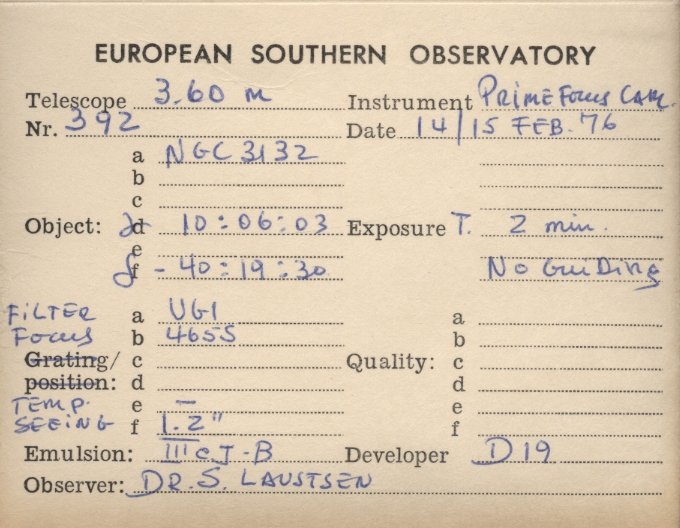 EUROPEAN SOUTHERN OBSERVATORY
Telescope 3.60 m Instrument PRIME FOCUS CAM.
Nr. 392 Date 14/15 FEB. 76
a NGC 3132
b
c
Object: α d 10:06:03 Exposure T. 2 min.
e
δ f -40:19:30 NO GUIDING
FILTER a UG1 a
FOCUS b 4655 b
Grating/ c Quality: c
position: d d
TEMP. e — e
SEEING f 1.2" f
Emulsion: III a J-B Developer D19
Observer: DR. S. LAUSTSEN